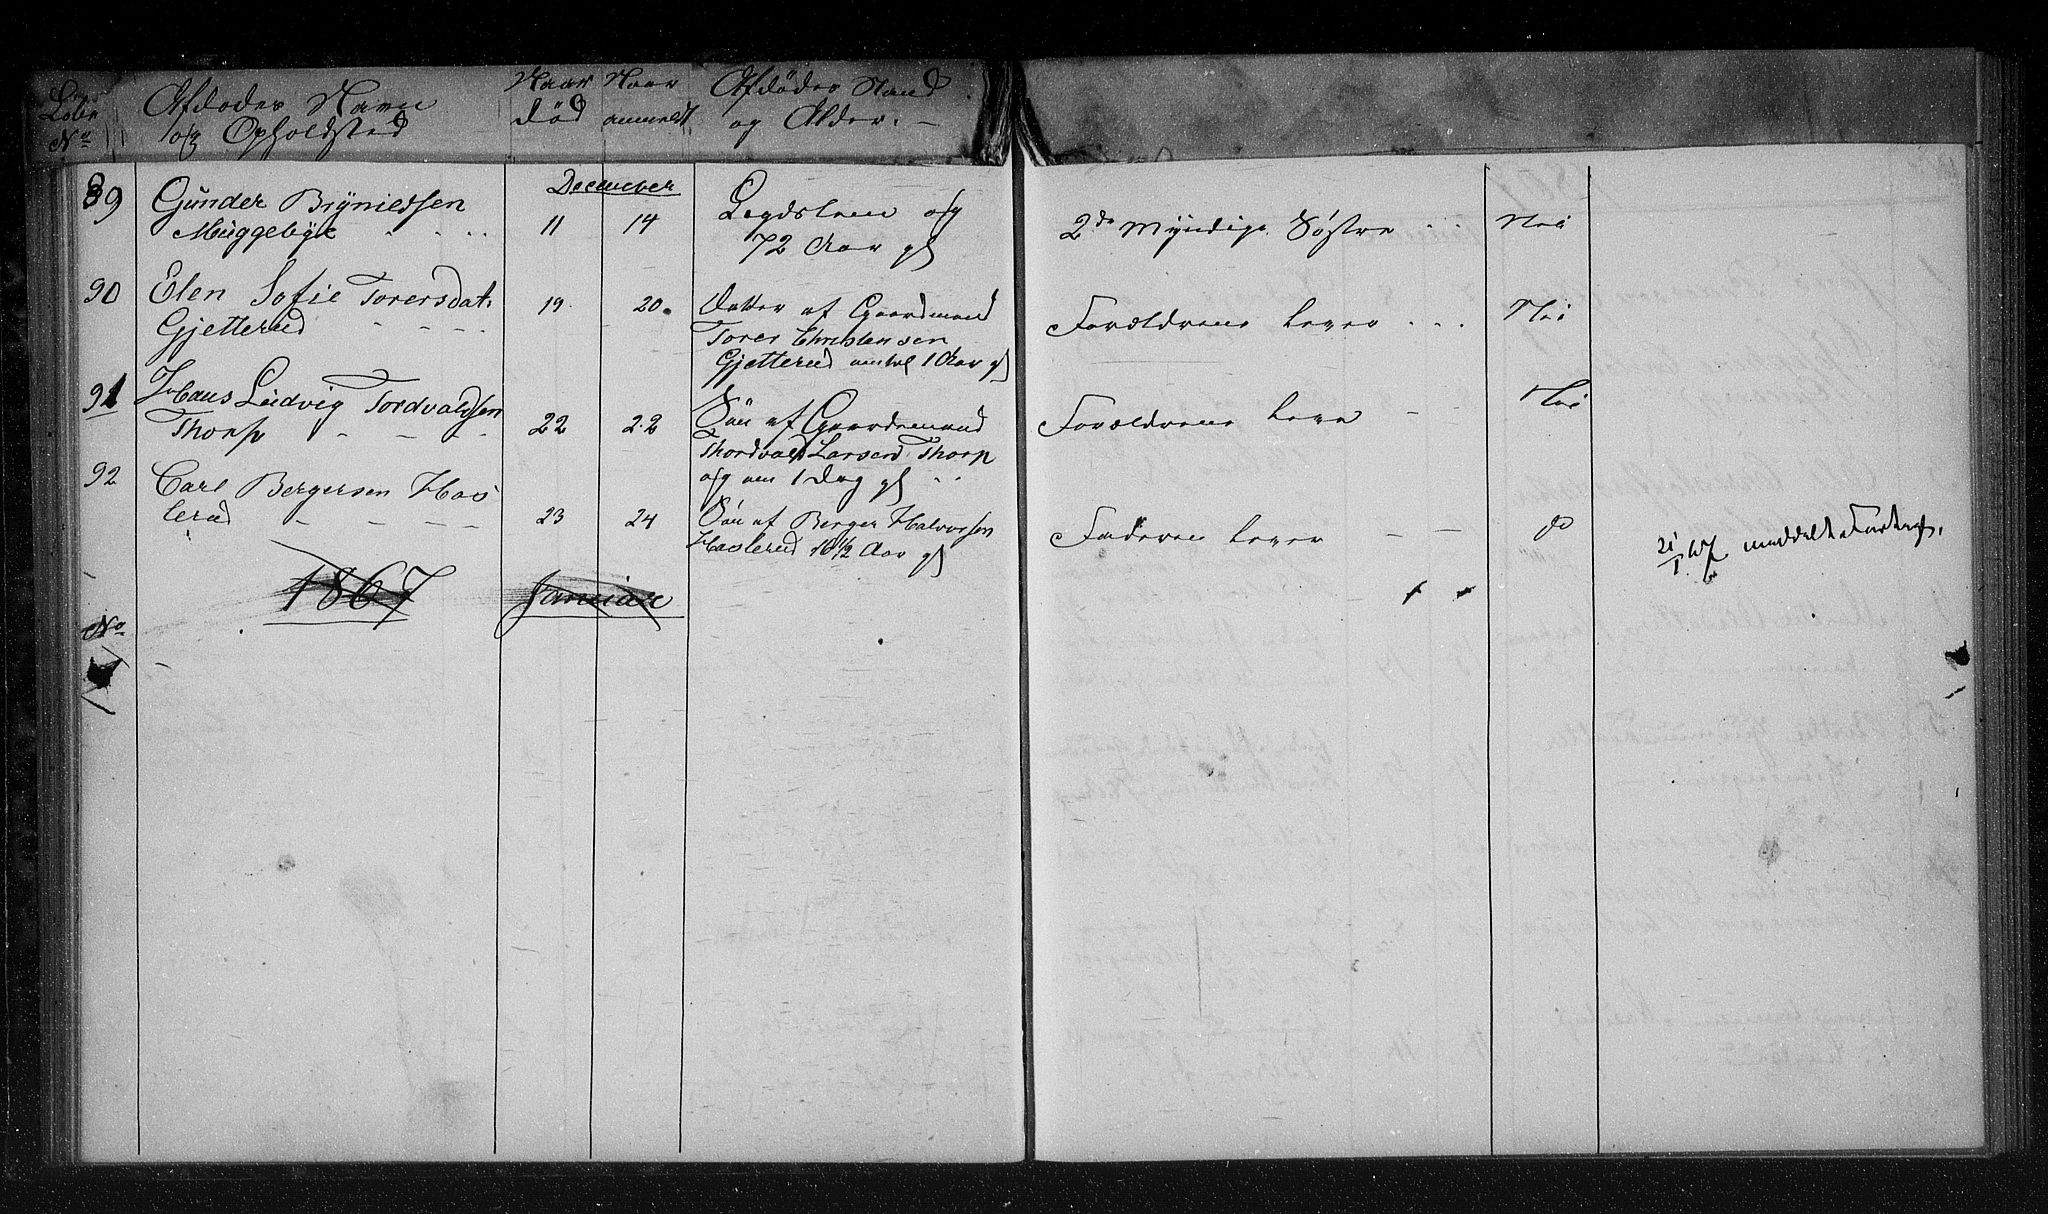 Løbe No
Afdødes Navn
og Opholdsted
Naar
død
Naar
anmeldt
Afdødes Stand
og Alder. –
December
89 Gunder Brynildsen
Muggebye
11 14
Legdslem og
72 Aar gl
2de Myndige Søstre
Nei
90 Elen Sofie Torersdat.
Gjetterud
19 20.
Datter af Gaardmand
Torer Christensen
Gjetterud omtal 1 Aar gl
Forældrene lever
Nei
91 Hans Ludvig Tordvaldsen
Thorp
22 22
Søn af Gaardemand
Thordvald Larsen Thorp
og om 1 Dag gl
Forældrene leve
Nei
92 Carl Bergersen Has
lerud
23 24
Søn af Berger Halvorsen
Haslerud 16 1/2 Aar gl
Faderen lever
do
21/1 67 meddelt
1867
Januar
No